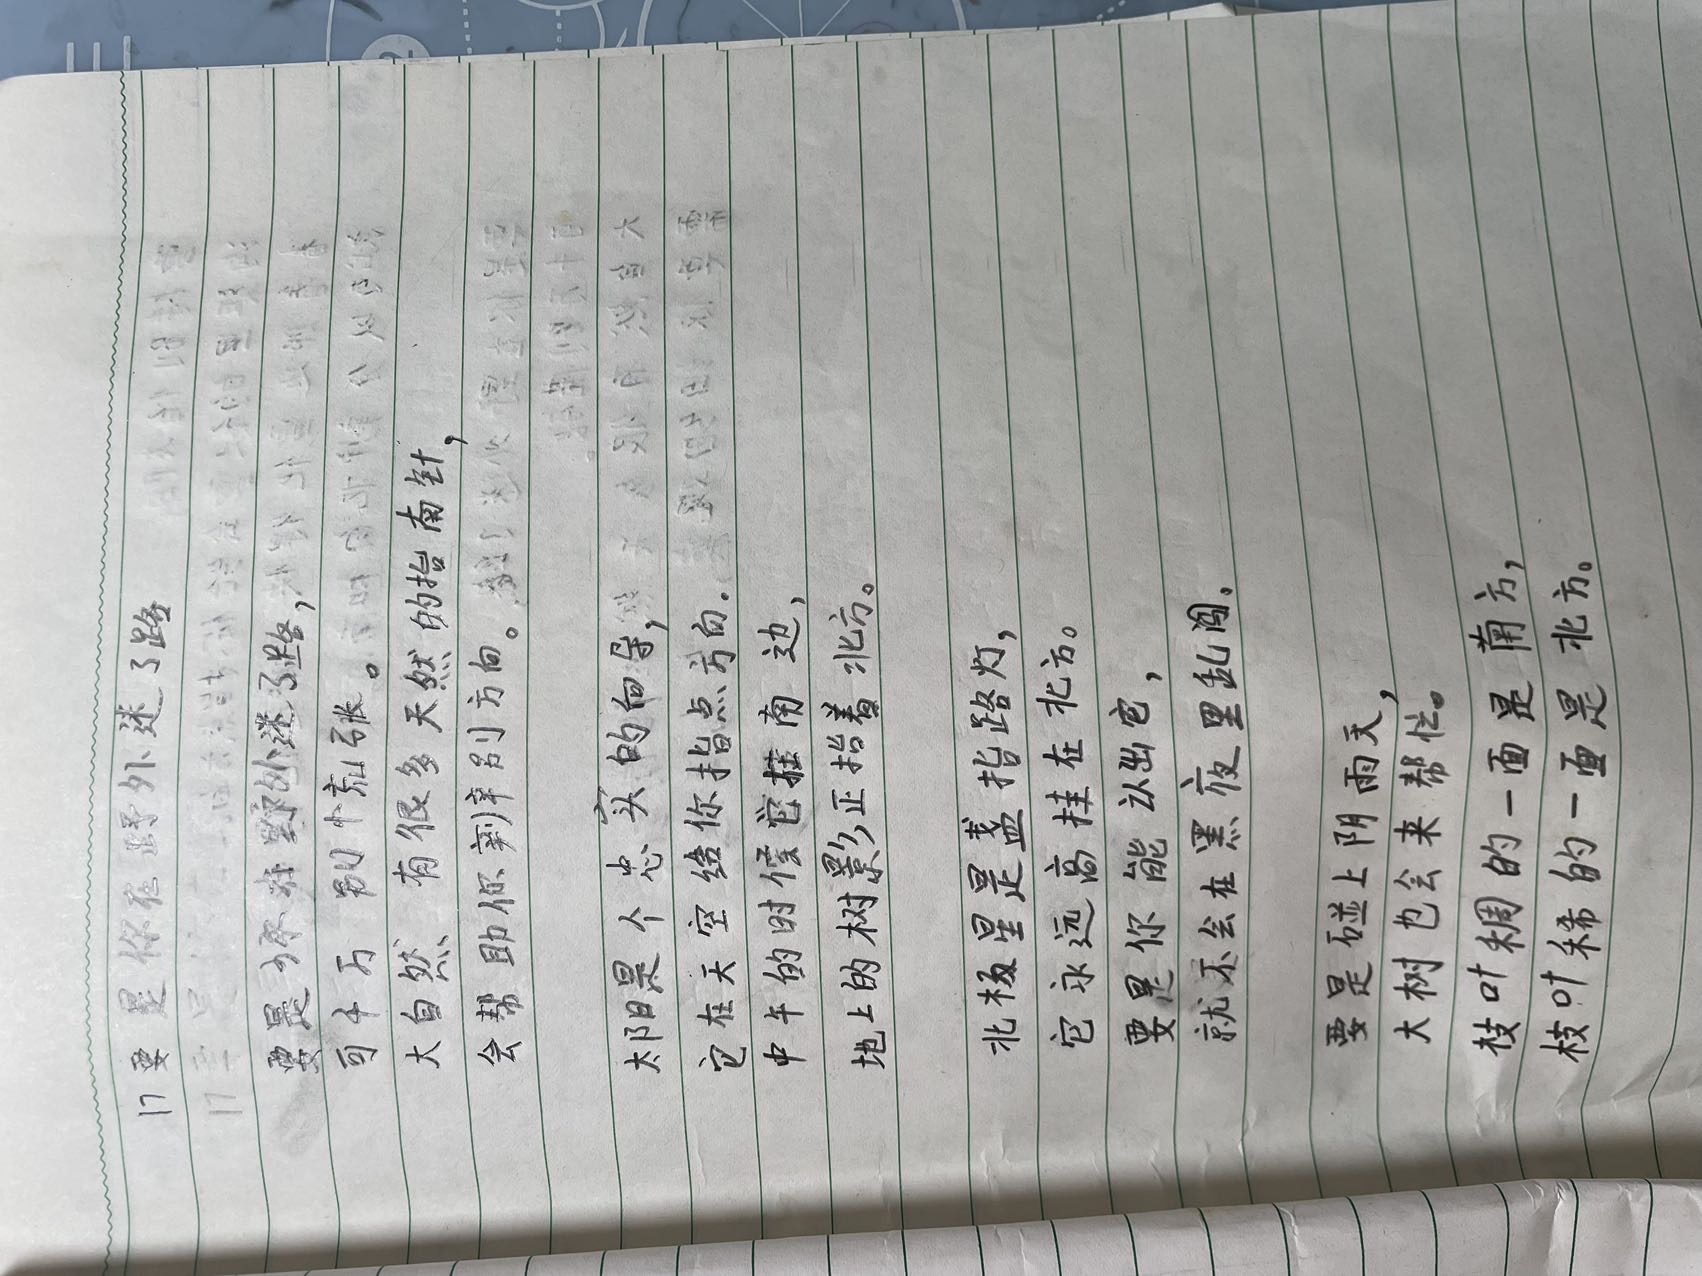 17 要是你在野外迷了路
要是你在野外迷了路，
可千万别慌张。
大自然有很多天然的指南针，
会帮助你辨别方向。
太阳是个忠实的向导，
它在天空给你指点方向。
中午的时候它挂南边，
地上的树影正指着北方。
北极星是盏指路灯，
它永远高挂在北方。
要是你能认出它，
就不会在黑夜里乱闯。
要是碰上阴雨天，
大树也会来帮忙。
枝叶稠的一面是南方，
枝叶稀的一面是北方。